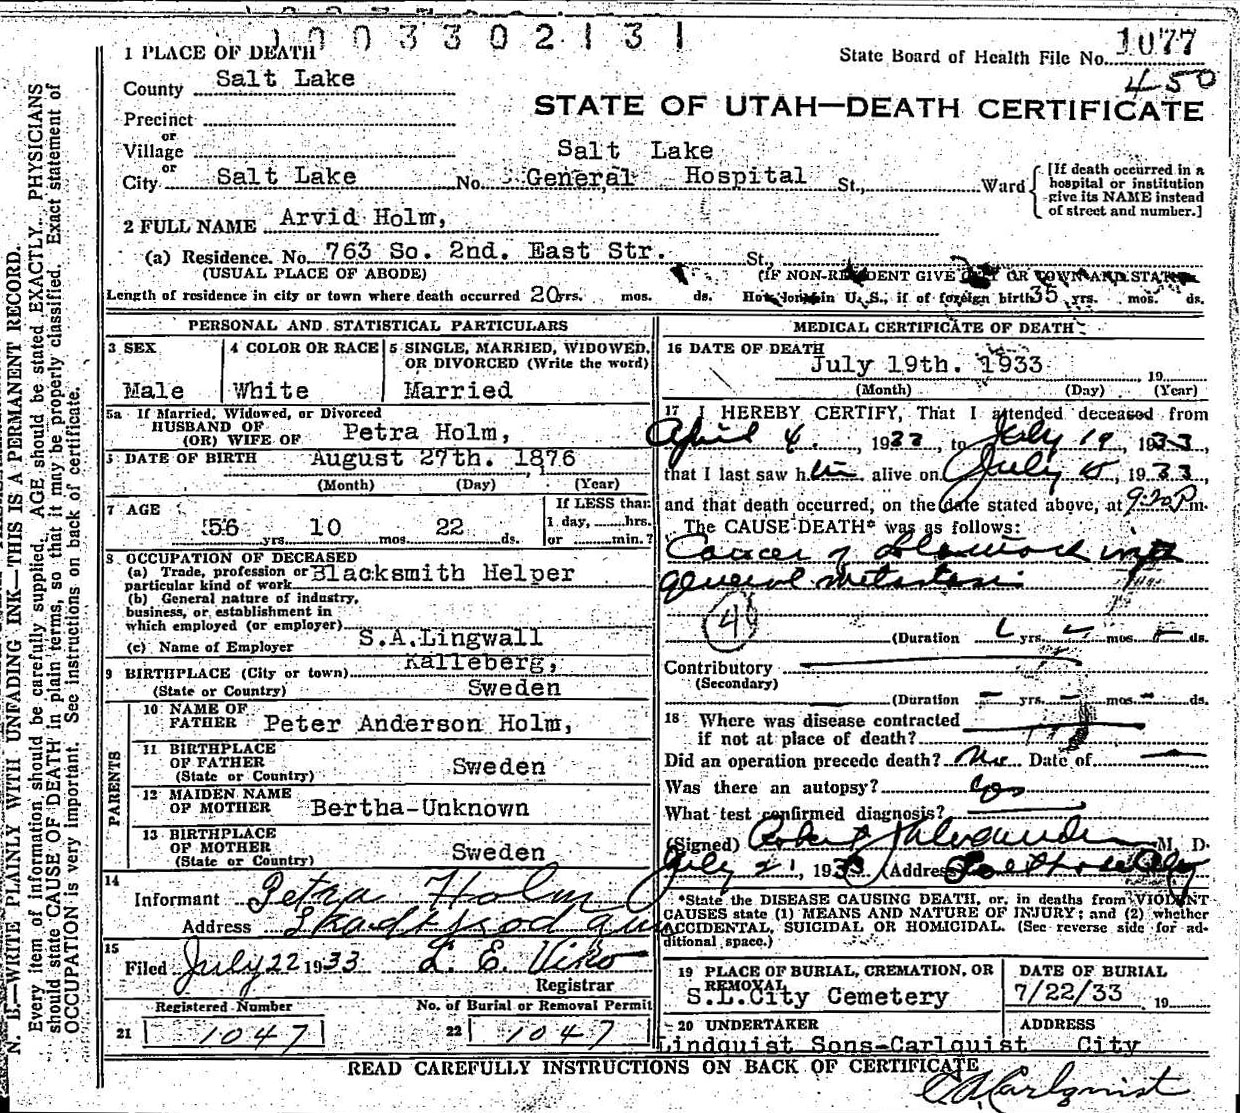 1003302131
State Board of Health File No. 1077
450
STATE OF UTAH—DEATH CERTIFICATE
1 PLACE OF DEATH
County Salt Lake
Precinct
or
Village
or
City Salt Lake No. Salt Lake General Hospital St., Ward
[If death occurred in a
hospital or institution
give its NAME instead
of street and number.]
2 FULL NAME Arvid Holm,
(a) Residence. No. 763 So. 2nd. East Str. St.,
(USUAL PLACE OF ABODE) (IF NON-RESIDENT GIVE CITY OR TOWN AND STATE
Length of residence in city or town where death occurred 20 yrs. mos. ds. How long in U. S., if of foreign birth 35 yrs. mos. ds.
PERSONAL AND STATISTICAL PARTICULARS
3 SEX
Male
4 COLOR OR RACE
White
5 SINGLE, MARRIED, WIDOWED,
OR DIVORCED (Write the word)
Married
5a If Married, Widowed, or Divorced
HUSBAND OF
(OR) WIFE OF Petra Holm,
DATE OF BIRTH August 27th. 1876
(Month) (Day) (Year)
7 AGE
56 yrs. 10 mos. 22 ds.
If LESS than
1 day, hrs.
or min.?
8 OCCUPATION OF DECEASED
(a) Trade, profession or
particular kind of work Blacksmith Helper
(b) General nature of industry,
business, or establishment in
which employed (or employer)
(c) Name of Employer S.A.Lingwall
9 BIRTHPLACE (City or town) Kalleberg,
(State or Country) Sweden
PARENTS
10 NAME OF
FATHER Peter Anderson Holm,
11 BIRTHPLACE
OF FATHER Sweden
(State or Country)
12 MAIDEN NAME
OF MOTHER Bertha-Unknown
13 BIRTHPLACE
OF MOTHER Sweden
(State or Country)
14
Informant Petra Holm
Address
15
Filed July 22 1933 L. E. Viko
Registrar
Registered Number
21 1047
No. of Burial or Removal Permit
22 1047
MEDICAL CERTIFICATE OF DEATH
16 DATE OF DEATH
July 19th. 1933 19
(Month) (Day) (Year)
17 I HEREBY CERTIFY, That I attended deceased from
April 4, 1933, to July 19, 1933,
that I last saw him alive on July, 1933
and that death occurred, on the date stated above, at 9:20 P.m.
The CAUSE DEATH* was as follows:
Cancer of Stomach with
general metastasis
4
(Duration yrs. mos. ds.
Contributory
(Secondary)
(Duration yrs. mos. ds.
18 Where was disease contracted
if not at place of death?
Did an operation precede death? No Date of
Was there an autopsy? Yes
What test confirmed diagnosis?
(Signed) Robert Alexander M. D.
July 21, 1933 (Address Salt Lake City
*State the DISEASE CAUSING DEATH, or, in deaths from VIOLENT
CAUSES state (1) MEANS AND NATURE OF INJURY; and (2) whether
ACCIDENTAL, SUICIDAL OR HOMICIDAL. (See reverse side for ad-
ditional space.)
19 PLACE OF BURIAL, CREMATION, OR
REMOVAL
S.L.City Cemetery
DATE OF BURIAL
7/22/33 19
20 UNDERTAKER
Lindquist Sons-Carlquist
ADDRESS
City
READ CAREFULLY INSTRUCTIONS ON BACK OF CERTIFICATE
Carlquist
N. B.—WRITE PLAINLY WITH UNFADING INK—THIS IS A PERMANENT RECORD.
Every item of information should be carefully supplied. AGE should be stated EXACTLY. PHYSICIANS
should state CAUSE OF DEATH in plain terms, so that it may be properly classified. Exact statement of
OCCUPATION is very important. See instructions on back of certificate.